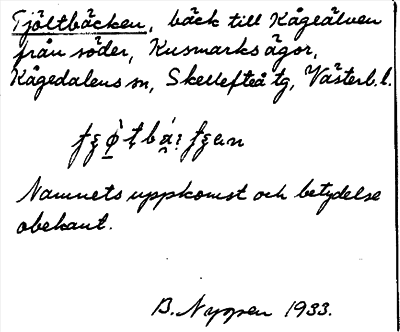 Tjöltbäcken, bäck till Kågeälven
från söder, Kusmarks ägor,
Kågedalens sn, Skellefteå tg, Västerb. l.
Namnets uppkomst och betydelse
obekant.
B. Nygren 1933.